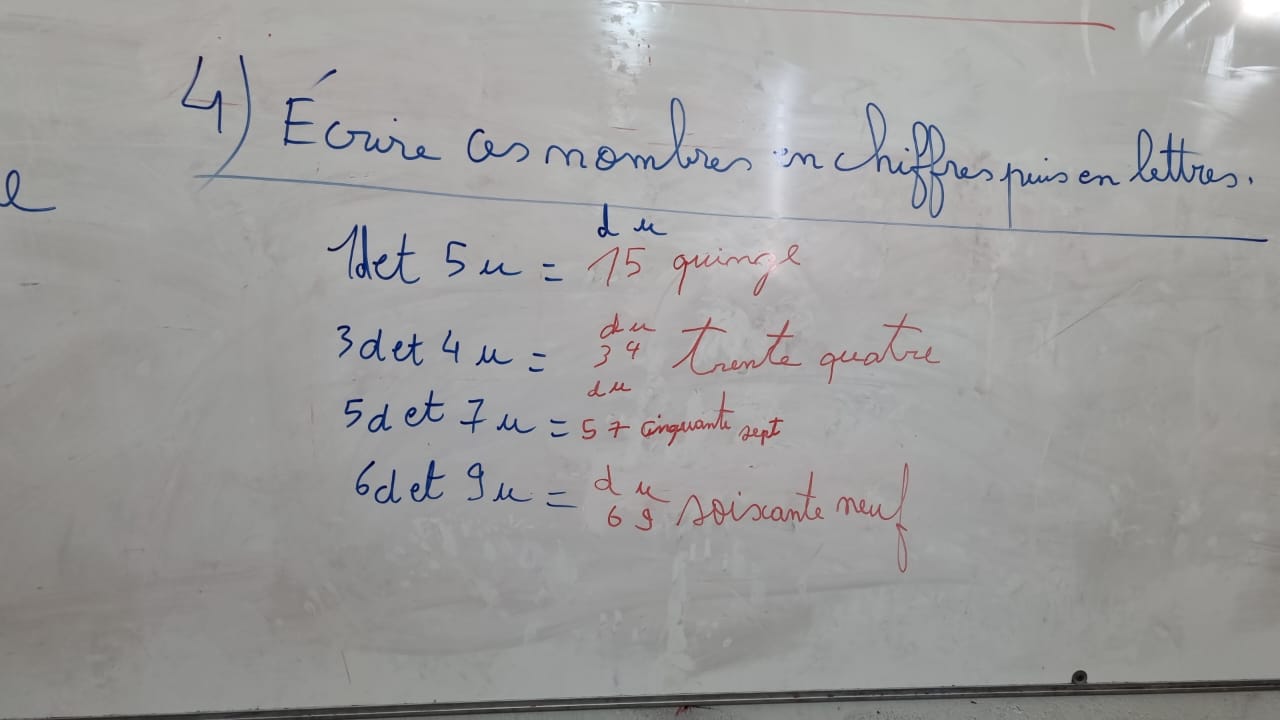 4) Écrire ces nombres en chiffres puis en lettres.
e
d u
1d et 5 u = 15 quinze
d u
3 d et 4 u = 3 4 trente quatre
d u
5d et 7 u = 5 7 cinquante sept
d u
6d et 9 u = 6 9 soixante neuf